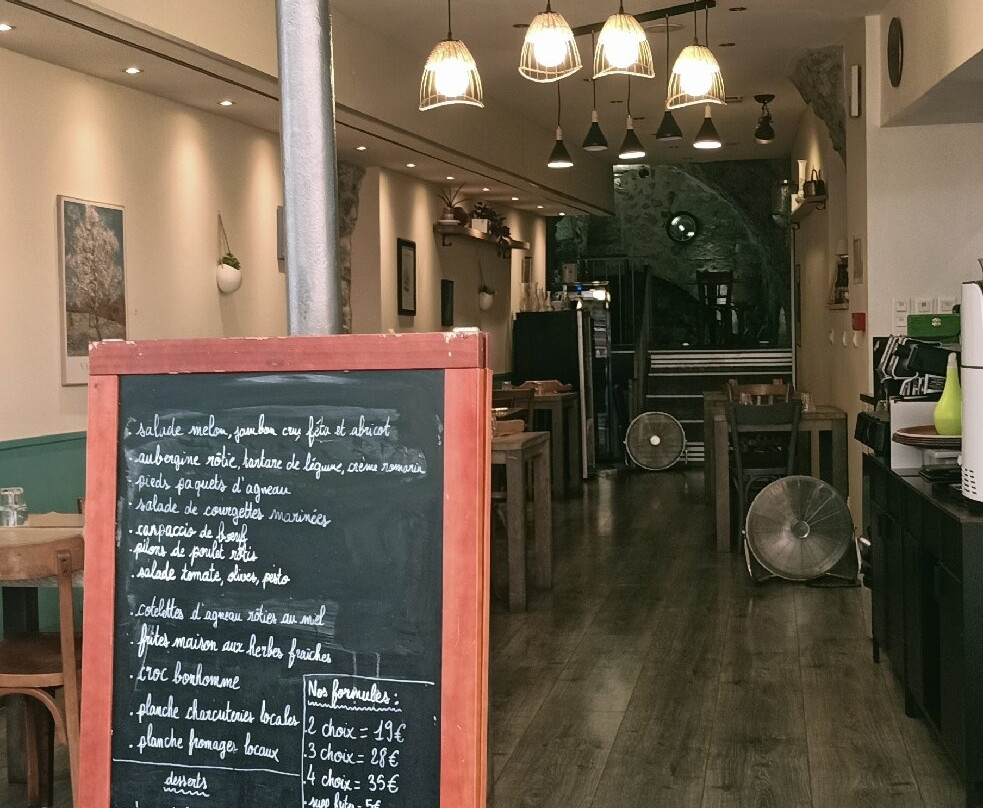 . salade melon, jambon cru, féta et abricot
. aubergine rôtie, tartare de légume, crème romarin
. pieds paquets d'agneau
. salade de courgettes marinées
. carpaccio de boeuf
. pilons de poulet rôtis
. salade tomate, olives, pesto
. cotelettes d'agneau rôties au miel
. frites maison aux herbes fraîches
. croc bonhomme
. planche charcuteries locales
. planche fromages locaux
desserts
Nos formules :
. 2 choix = 19€
. 3 choix = 28€
. 4 choix = 35€
. supp frites = 5€